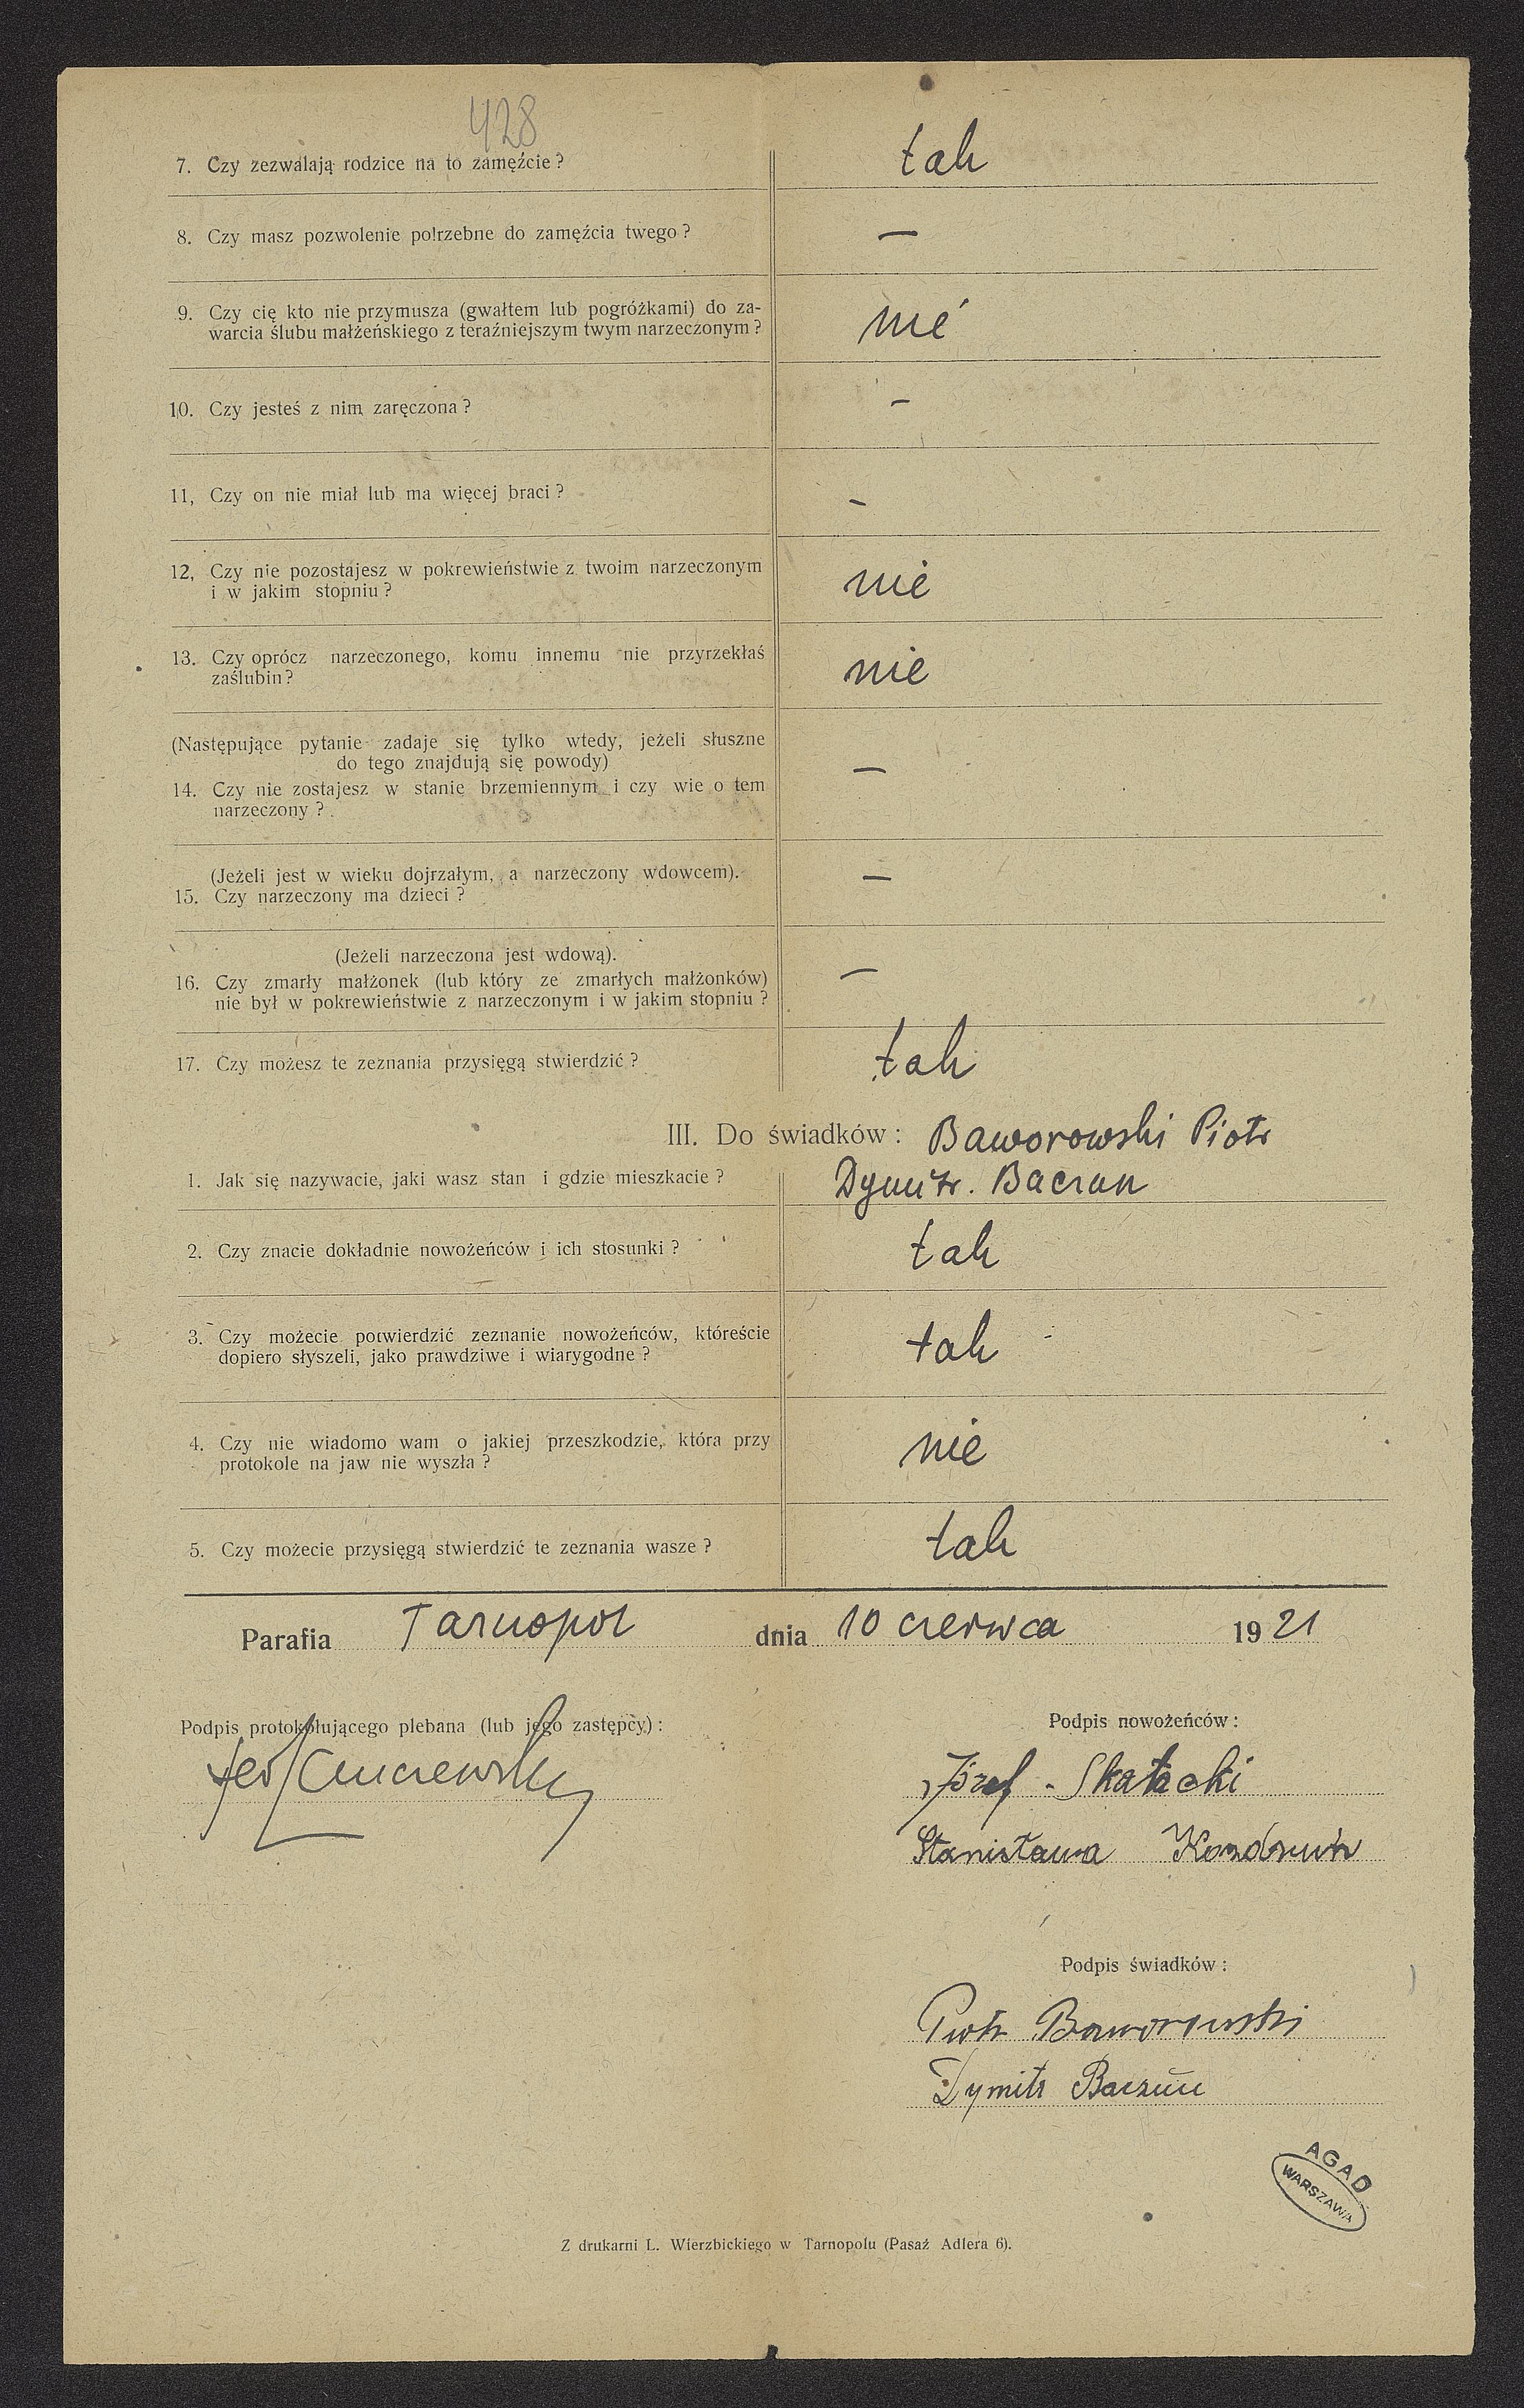 428
7. Czy zezwalają rodzice na to zamęźcie ? tak
8. Czy masz pozwolenie potrzebne do zamęźcia twego ? —
9. Czy cię kto nie przymusza (gwałtem lub pogróżkami) do za-
warcia ślubu małżeńskiego z teraźniejszym twym narzeczonym ? nie
10. Czy jesteś z nim zaręczona ? –
11, Czy on nie miał lub ma więcej braci ? –
12, Czy nie pozostajesz w pokrewieństwie z twoim narzeczonym
i w jakim stopniu ? nie
13. Czy oprócz narzeczonego, komu innemu nie przyrzekłaś
zaślubin ? nie
(Następujące pytanie zadaje się tylko wtedy, jeżeli słuszne
do tego znajdują się powody) —
14. Czy nie zostajesz w stanie brzemiennym i czy wie o tem
narzeczony ?
(Jeżeli jest w wieku dojrzałym, a narzeczony wdowcem). —
15. Czy narzeczony ma dzieci ?
(Jeżeli narzeczona jest wdową).
16. Czy zmarły małżonek (lub który ze zmarłych małżonków) —
nie był w pokrewieństwie z narzeczonym i w jakim stopniu ?
17. Czy możesz te zeznania przysięgą stwierdzić ? tak
III. Do świadków : Baworowski Piotr
1. Jak się nazywacie, jaki wasz stan i gdzie mieszkacie ? Dymitr. Baczun
2. Czy znacie dokładnie nowożeńców i ich stosunki ? tak
3. Czy możecie potwierdzić zeznanie nowożeńców, któreście
dopiero słyszeli, jako prawdziwe i wiarygodne ? tak
4. Czy nie wiadomo wam o jakiej przeszkodzie, która przy
protokole na jaw nie wyszła ? nie
5. Czy możecie przysięgą stwierdzić te zeznania wasze ? tak
Parafia Tarnopol dnia 10 czerwca 1921
Podpis protokołującego plebana (lub jego zastępcy) :
Podpis nowożeńców :
Józef - Skałacki
Stanisława
Podpis świadków :
Piotr Baworowski
Dymitr Baczun
AGAD
WARSZAWA
Z drukarni L. Wierzbickiego w Tarnopolu (Pasaź Adlera 6).